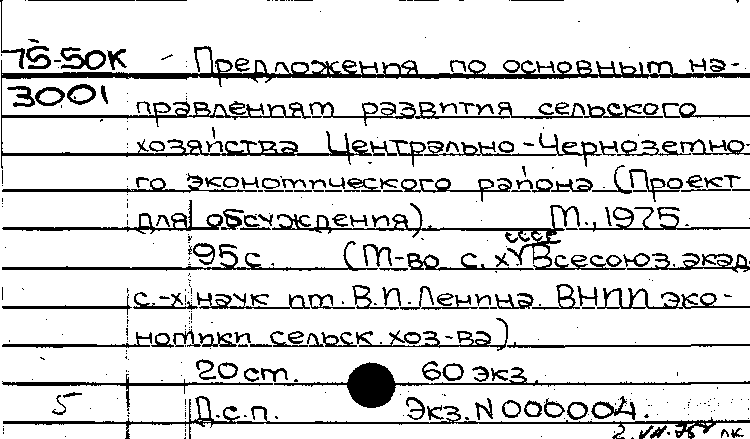 75-50К - Предложения по основным на-
3001 правлениям развития сельского
хозяйства Центрально-Черноземно-
го экономического района (Проект
для обсуждения). М., 1975.
СССР
95 с. (М-во с.х. Всесоюз. акад.
с.-х. наук им. В.И. Ленина. ВНИИ эко-
номики сельск. хоз-ва).
20 см. 60 экз.
5 Д.с.п. Экз. N 000004.